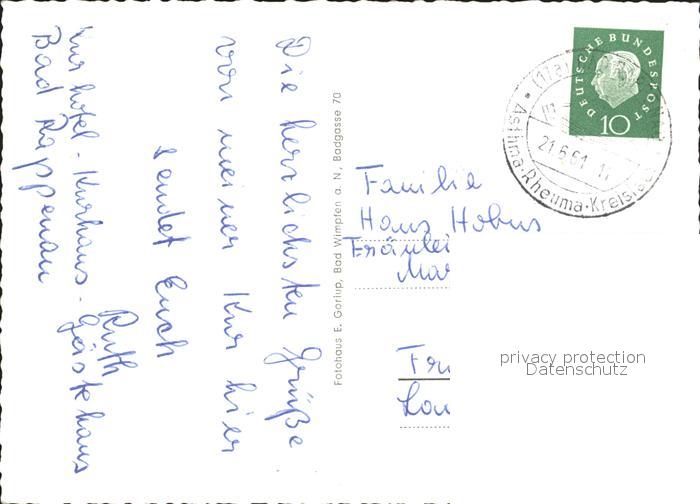 Die herzlichsten Grüße
von meiner Kur hier
sendet Euch
Ruth
Kurhotel - Kurhaus - Gästehaus
Bad Rappenau
Fotohaus E. Gorlup, Bad Wimpfen a. N., Badgasse 70
DEUTSCHE BUNDESPOST
10
21.6.61
Asthma·Rheuma·Kreisl
Familie
Hans Hobus
Fräulei
Mar
Fr
Lau
privacy protection
Datenschutz